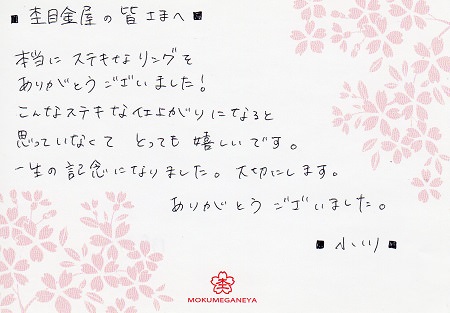 ■ 杢目金屋の皆さまへ ■
本当にステキなリングを
ありがとうございました!
こんなステキな仕上がりになると
思っていなくて とっても嬉しいです。
一生の記念になりました。大切にします。
ありがとうございました。
■ 小川 ■
杢
MOKUMEGANEYA